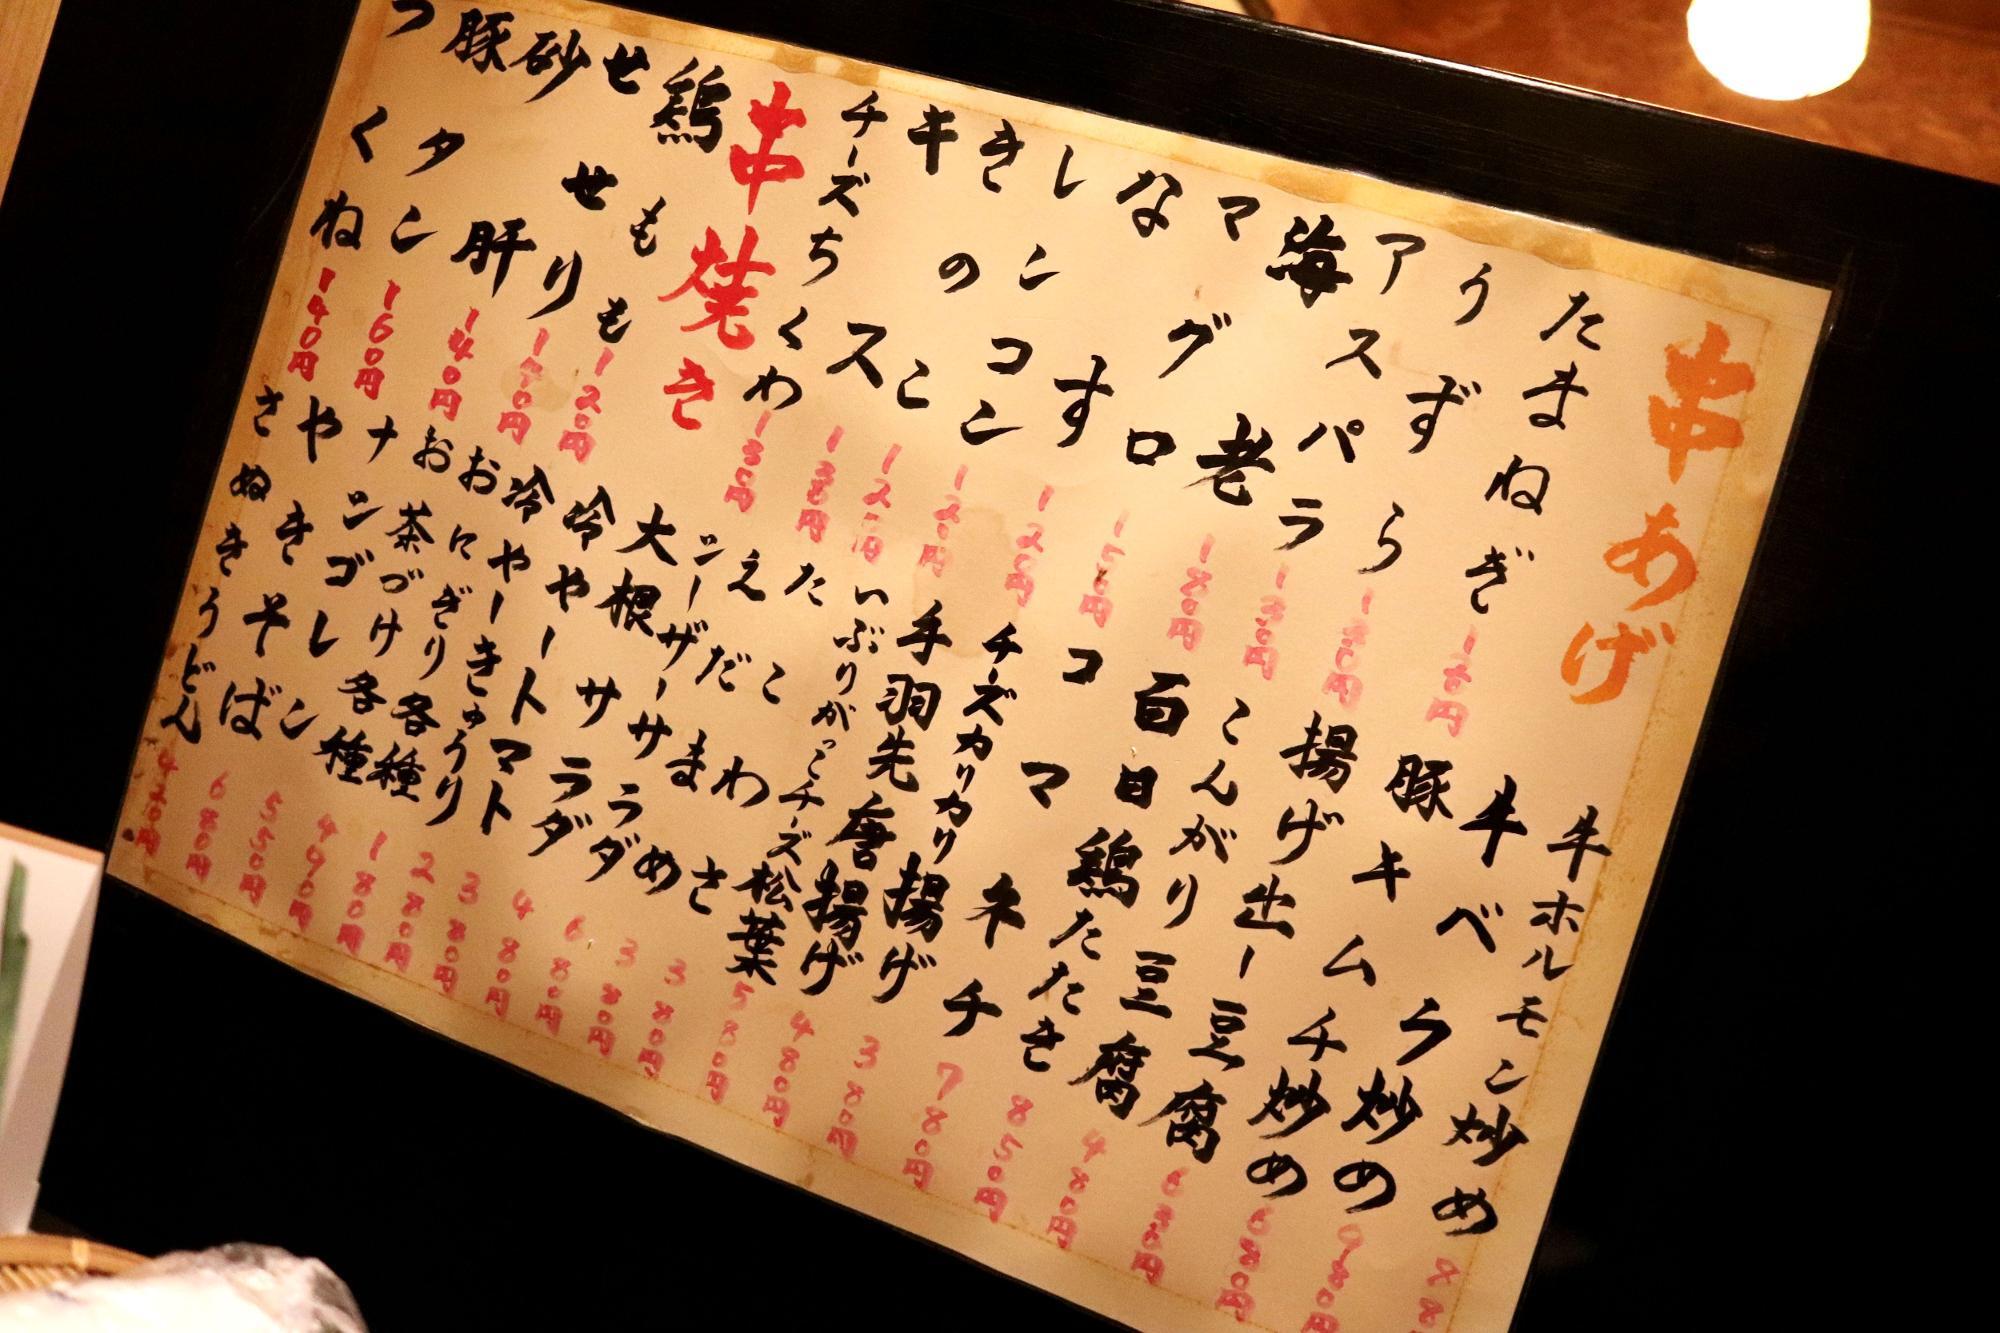 串あげ
たまねぎ
うずら
アスパラ 130円
海老 180円
マグロ
なす 120円
しンコン
きのこ
キス
チーズちくわ
串焼き
鶏もも 120円
せせり
砂肝 140円
豚タン 160円
つくね 140円
牛ホルモン炒め
牛ベラ炒め 980円
豚キムチ炒め 680円
揚げ出ー豆腐
こんがり豆腐 480円
百日鶏たたき 850円
コマネチ 780円
チーズカリカリ揚げ 380円
手羽先唐揚げ 480円
いぶりがっこチーズ松葉 580円
たこわさ 380円
えだまめ 380円
シーザーサラダ 680円
大根サラダ 480円
冷やートマト 380円
冷やーきゅうり 280円
おにぎり各種 180円
お茶づけ各種 490円
ナンゴレン 550円
やきそば 680円
さぬきうどん